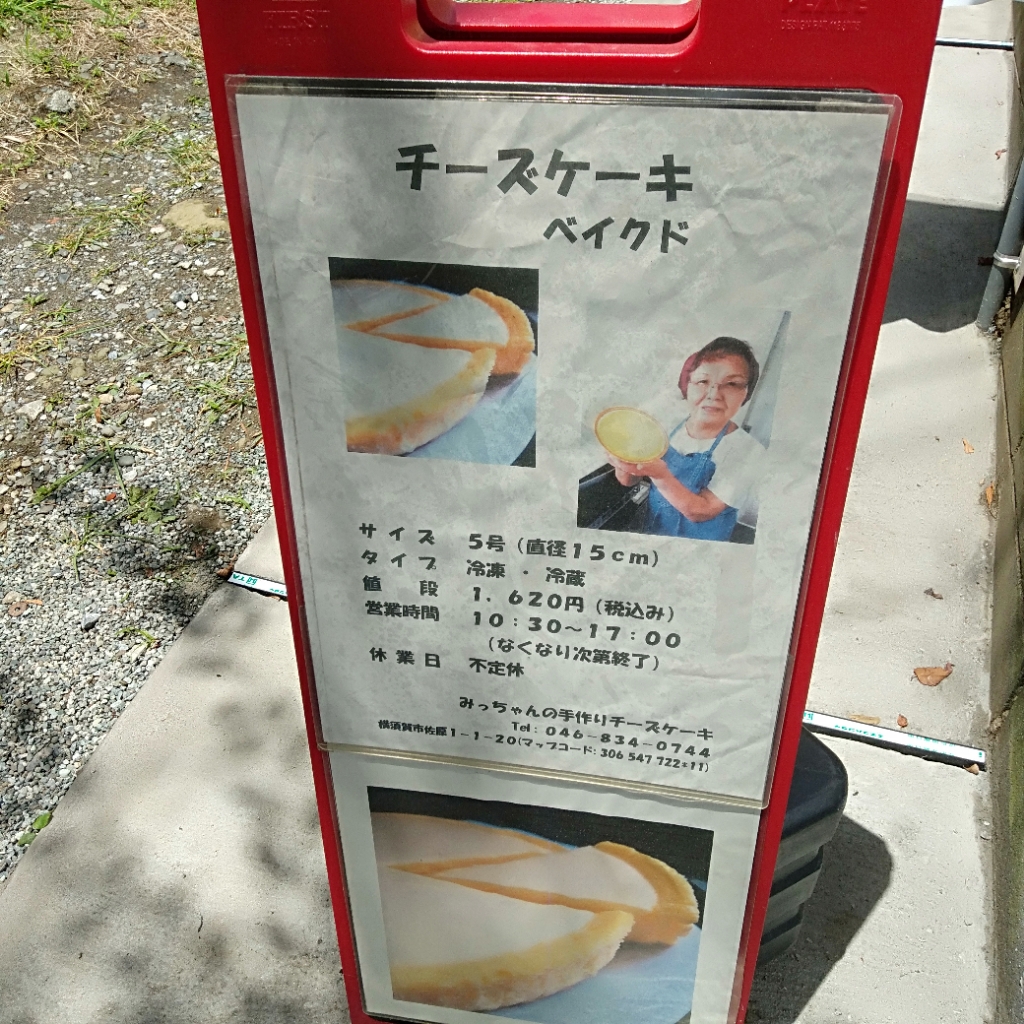 チーズケーキ
ベイクド
サイズ 5号（直径15cm）
タイプ 冷凍・冷蔵
値段 1．620円（税込み）
営業時間 10：30～17：00
（なくなり次第終了）
休業日 不定休
みっちゃんの手作りチーズケーキ
Tel：046-834-0744
横須賀市佐原1-1-20(マップコード：306 547 722*11)